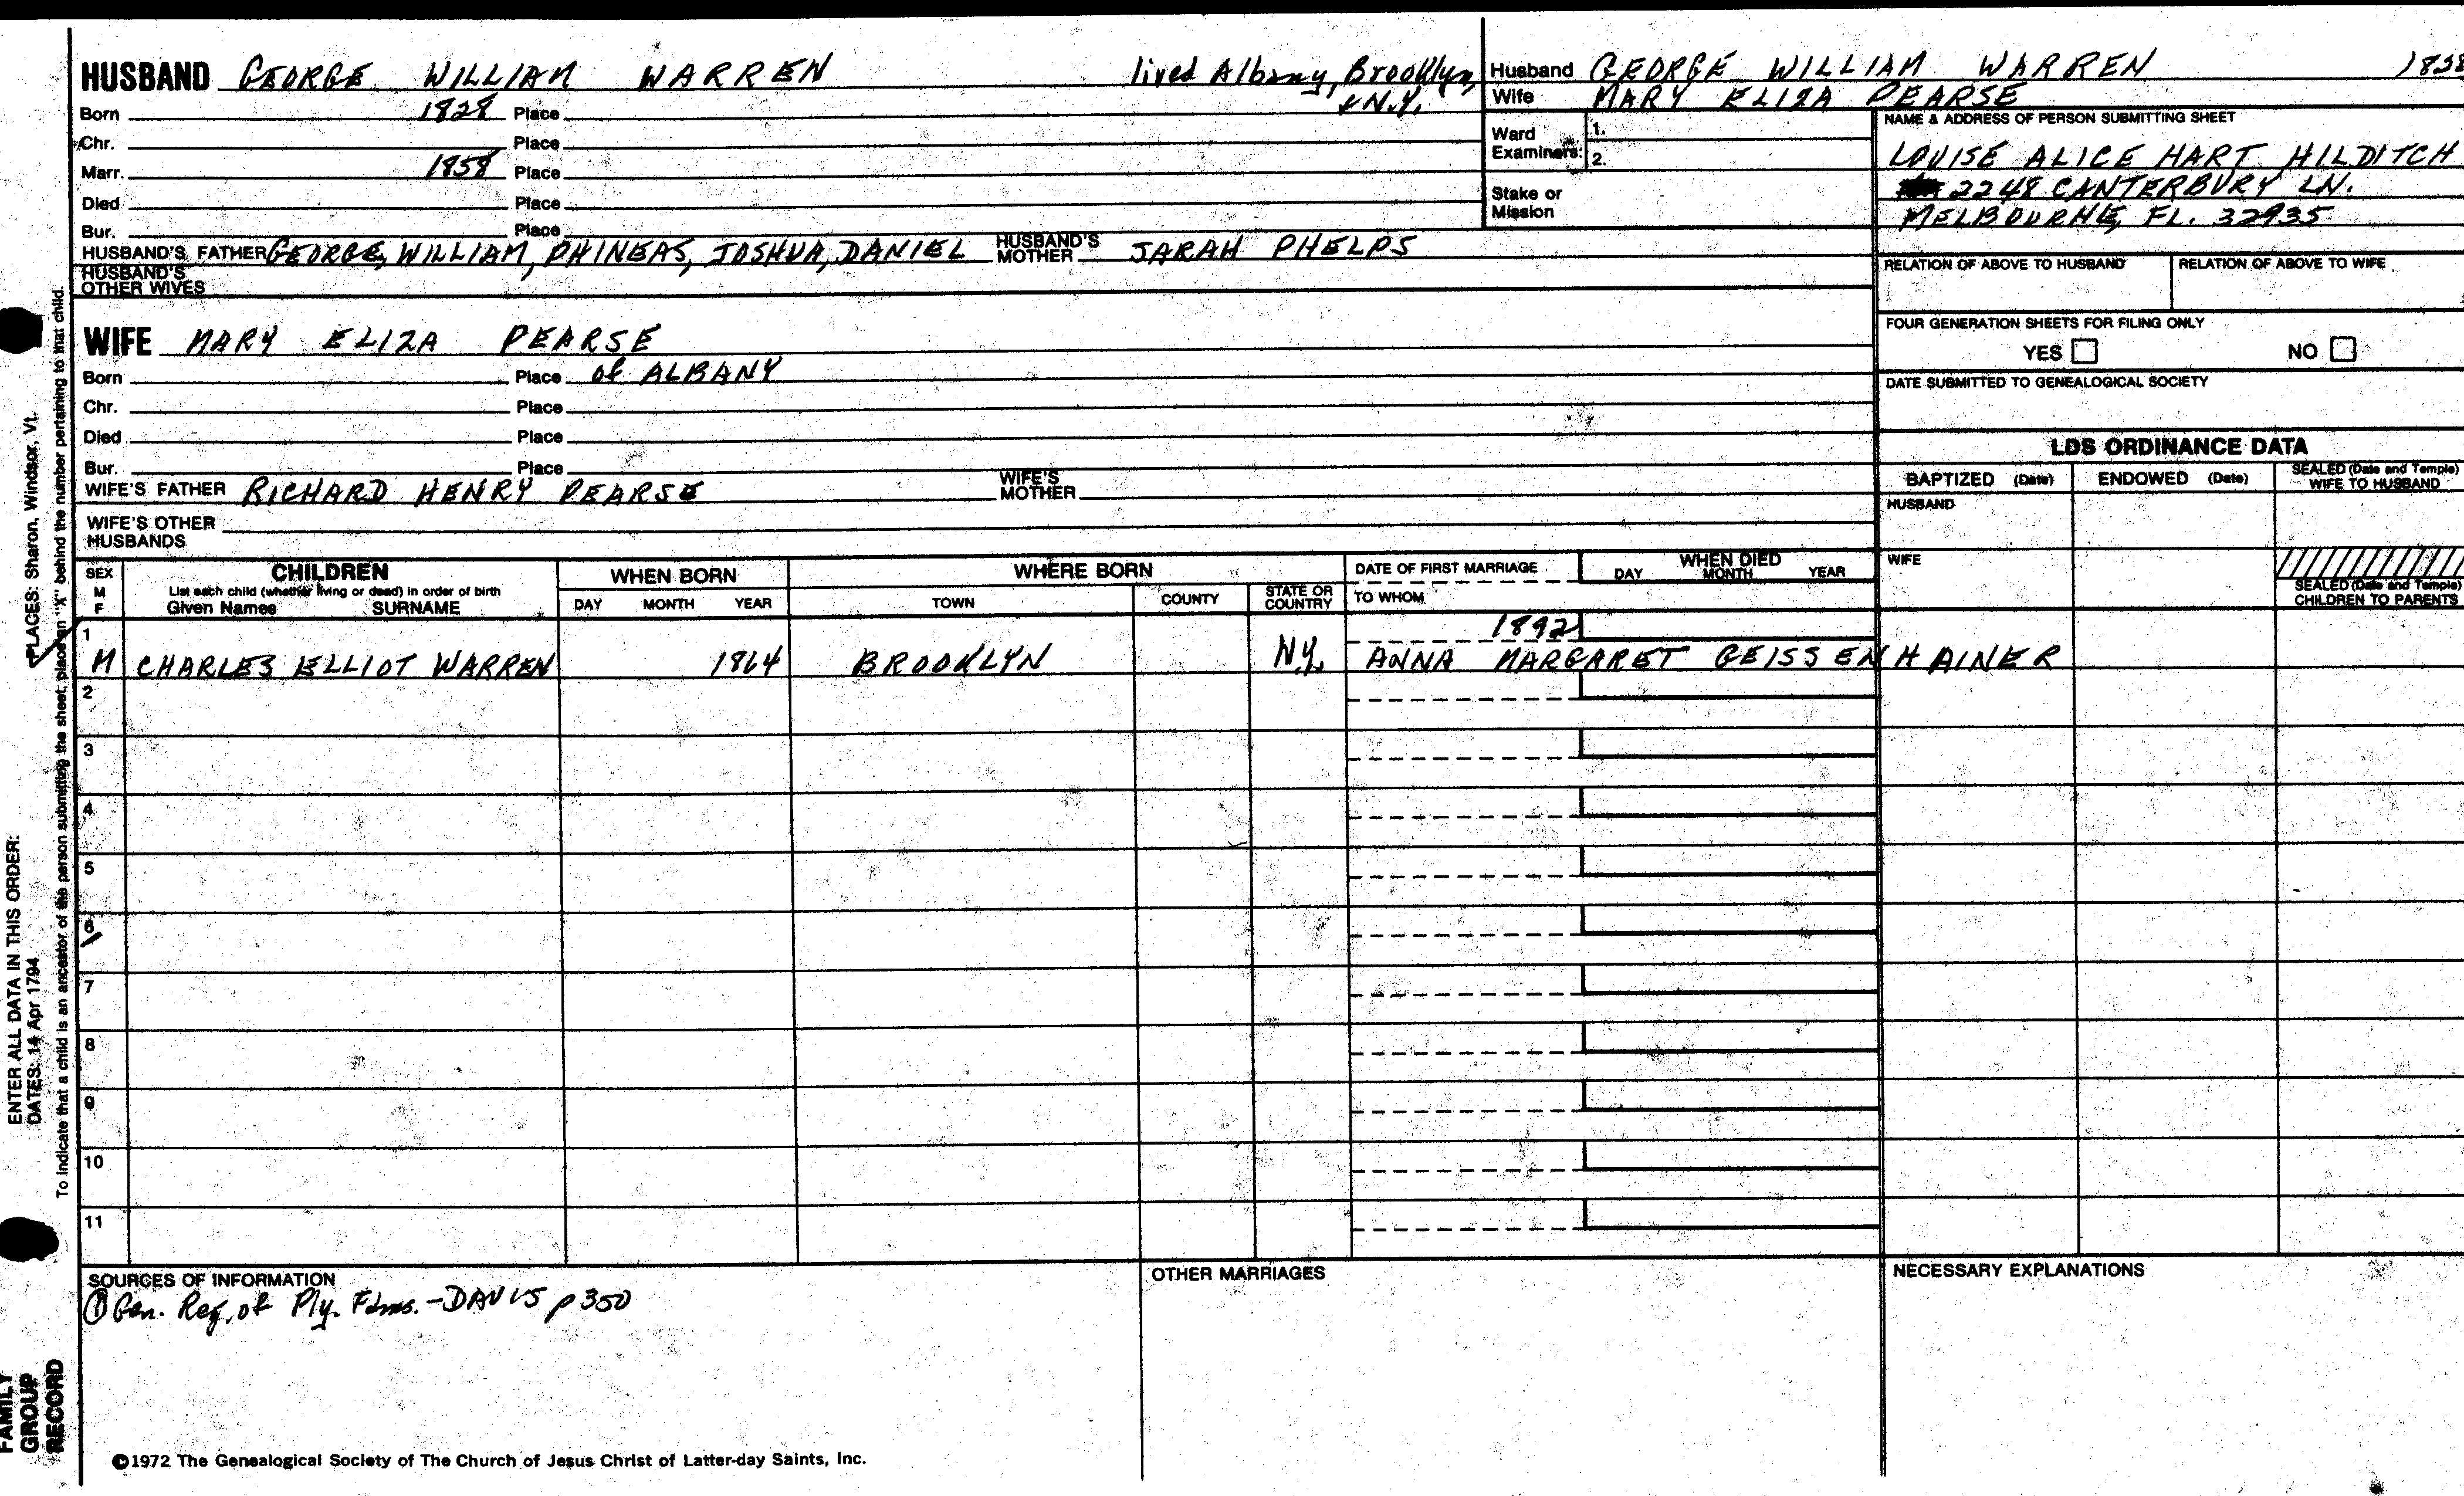 HUSBAND GEORGE WILLIAM WARREN lived Albany, Brooklyn,
& N.Y.
Born 1828 Place
Chr. Place
Marr. 1858 Place
Died Place
Bur. Place
HUSBAND'S FATHER GEORGE, WILLIAM, PHINEAS, JOSHUA, DANIEL HUSBAND'S MOTHER SARAH PHELPS
HUSBAND'S OTHER WIVES
WIFE MARY ELIZA PEARSE
Born Place of ALBANY
Chr. Place
Died Place
Bur. Place
WIFE'S FATHER RICHARD HENRY PEARSE WIFE'S MOTHER
WIFE'S OTHER HUSBANDS
Husband GEORGE WILLIAM WARREN
Wife MARY ELIZA PEARSE
Ward Examiners: 1.
2.
Stake or Mission
NAME & ADDRESS OF PERSON SUBMITTING SHEET
LOUISE ALICE HART HILDITCH
2248 CANTERBURY LN.
MELBOURNE, FL. 32935
RELATION OF ABOVE TO HUSBAND RELATION OF ABOVE TO WIFE
FOUR GENERATION SHEETS FOR FILING ONLY
YES NO
DATE SUBMITTED TO GENEALOGICAL SOCIETY
LDS ORDINANCE DATA
BAPTIZED (Date) ENDOWED (Date) SEALED (Date and Temple) WIFE TO HUSBAND
HUSBAND
WIFE
SEALED (Date and Temple) CHILDREN TO PARENTS
SEX M F
CHILDREN
List each child (whether living or dead) in order of birth
Given Names SURNAME
WHEN BORN
DAY MONTH YEAR
WHERE BORN
TOWN COUNTY STATE OR COUNTRY
DATE OF FIRST MARRIAGE
TO WHOM
WHEN DIED
DAY MONTH YEAR
1 1892
M CHARLES ELLIOT WARREN 1864 BROOKLYN N.Y. ANNA MARGARET GEISSENHAINER
2
3
4
5
6
7
8
9
10
11
SOURCES OF INFORMATION
① Gen. Reg. of Ply. Fams. - DAVIS p 350
OTHER MARRIAGES
NECESSARY EXPLANATIONS
©1972 The Genealogical Society of The Church of Jesus Christ of Latter-day Saints, Inc.
FAMILY GROUP RECORD
ENTER ALL DATA IN THIS ORDER:
DATES: 14 Apr 1794
PLACES: Sharon, Windsor, Vt.
To indicate that a child is an ancestor of the person submitting the sheet, place an "X" behind the number pertaining to that child.